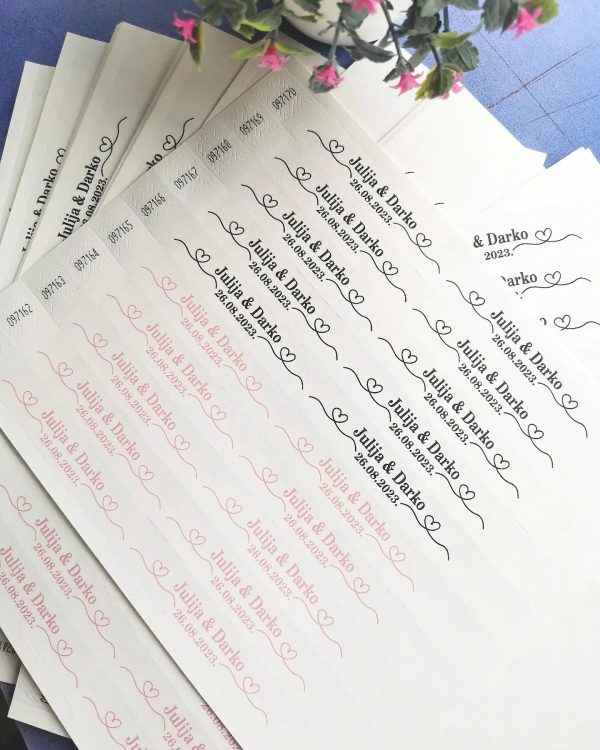 097170
Julija & Darko
26.08.2023.
Julija & Darko
26.08.2023.
097169
Julija & Darko
26.08.2023.
Julija & Darko
26.08.2023.
097168
Julija & Darko
26.08.2023.
Julija & Darko
26.08.2023.
097167
Julija & Darko
26.08.2023.
Julija & Darko
26.08.2023.
097166
Julija & Darko
26.08.2023.
Julija & Darko
26.08.2023.
097165
Julija & Darko
26.08.2023.
Julija & Darko
26.08.2023.
097164
Julija & Darko
26.08.2023.
Julija & Darko
26.08.2023.
097163
Julija & Darko
26.08.2023.
Julija & Darko
26.08.2023.
097162
Julija & Darko
26.08.2023.
Julija & Darko
26.08.2023.
Julija & Darko
26.08.2023.
Julija & Darko
26.08.2023.
Julija & Darko
26.08.2023.
Julija & Darko
26.08.2023.
Julija & Darko
& Darko
2023.
Darko